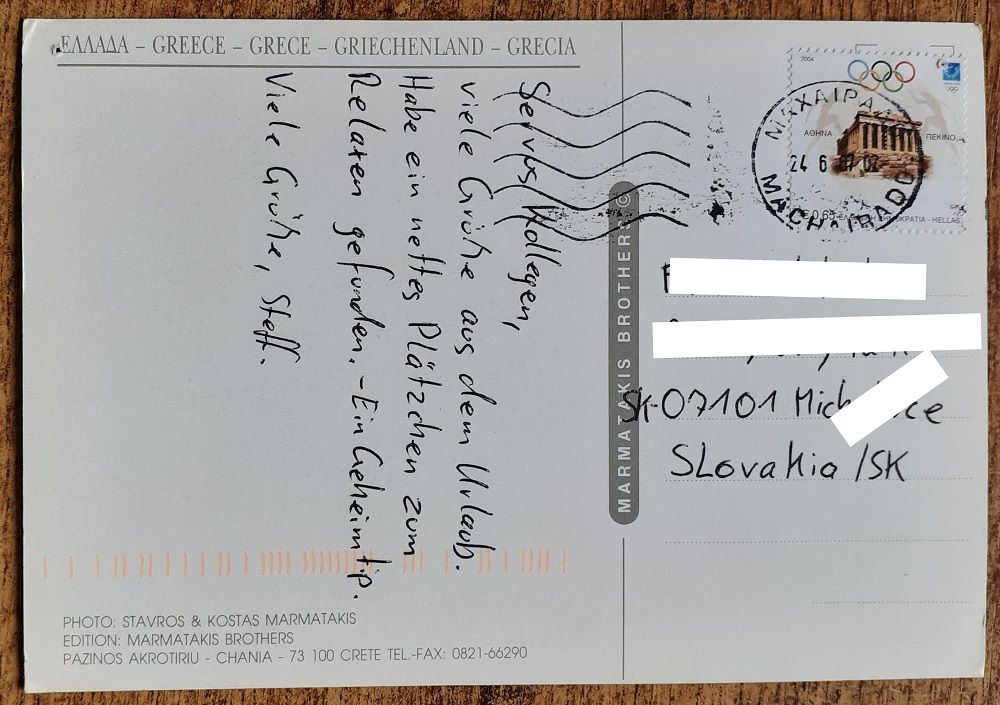 ΕΛΛΑΔΑ – GREECE – GRECE – GRIECHENLAND – GRECIA
Servus Kollegen,
viele Grüße aus dem Urlaub.
Habe ein nettes Plätzchen zum
Relaxen gefunden. – Ein Geheimtip.
Viele Grüße, Steff.
PHOTO: STAVROS & KOSTAS MARMATAKIS
EDITION: MARMATAKIS BROTHERS
PAZINOS AKROTIRIU - CHANIA - 73 100 CRETE TEL.-FAX: 0821-66290
MARMATAKIS BROTHERS ©
2004
ΑΘΗΝΑ
ΠΕΚΙΝΟ
24 6 07 02
MACHAIRADO
0,65
HELLAS
SK-07101
SLovakia /SK